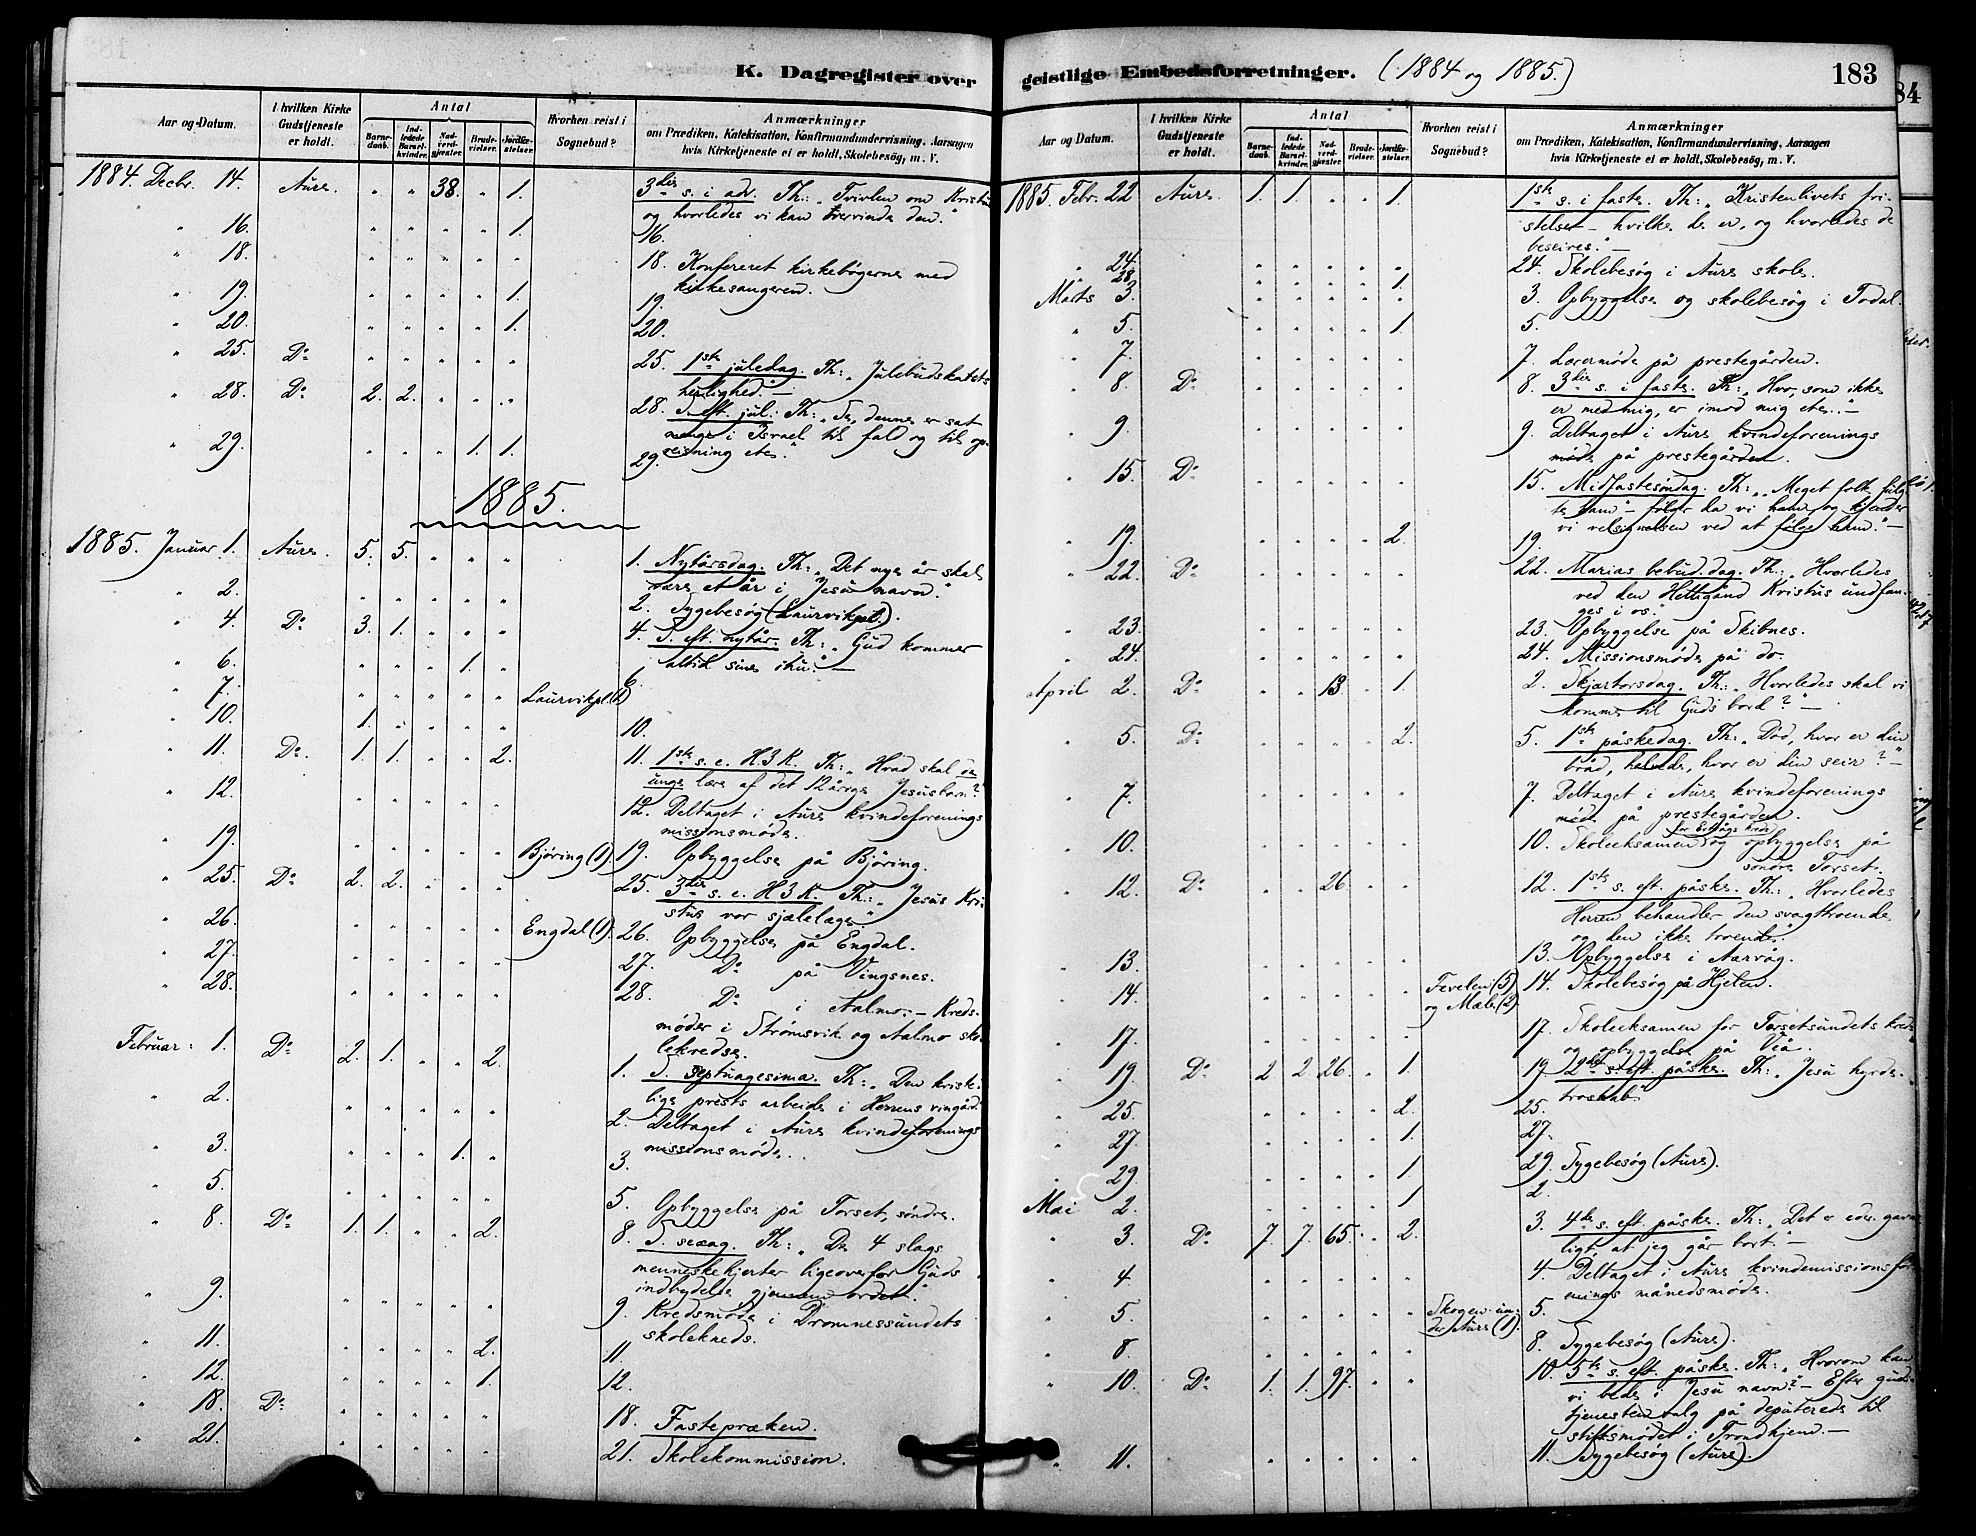 K. Dagregister over geistlige Embedsforretninger. (1884 og 1885.) 183
Aar og Datum. I hvilken Kirke Gudstjeneste er holdt. Antal Barnedaab. Indledede Barselkvinder. Nadverdgjæster. Brudevielser. Jordfæstelser. Hvorhen reist i Sognebud? Anmærkninger om Prædiken, Katekisation, Konfirmandundervisning, Aarsagen hvis Kirketjeneste ei er holdt, Skolebesøg, m. V.
1884. Decbr. 14. Aure. " " 38. " 1. 3die s. i adv. Th: "Tvivlen om Kristus
og hvorledes vi kan overvinde den."
" 16. " " " " 1. 16.
" 18. " " " " " 18. Konfereret kirkebøgerne med
kirkesangeren.
" 19. " " " " 1. 19.
" 20. " " " " 1. 20.
" 25. Do " " " " " 25. 1ste juledag. Th: "Julebudskabets
herlighed." –
" 28. Do 2. 2. " " " 28. S. eft. jul. Th: "Se, denne er sat
mange i Israel til fald og til op-
reisning etc."
" 29. " " " 1. 1. 29.
1885.
1885. Januar 1. Aure. 5. 5. " " " 1. Nytårsdag. Th: "Det nye år skal
være et år i Jesu navn."
" 2. " " " " " 2. Sygebesøg (Laurvikpl.).
" 4. Do 3. 1. " " " 4. S. eft. nytår. Th: "Gud kommer
altid sine ihu." –
" 6. " " " 1. " 6.
" 7. " " " " " Laurvikpl. (1)
" 10. 1. " " " " 10.
" 11. Do 1. 1. " " 2. 11. 1ste s. e. H3K. Th: "Hvad skal de
unge lære af det 12årige Jesusbarn?"
" 12. " " " " " 12. Deltaget i Aure kvindeforenings
missionsmøde.
" 19. " " " " " Bjøring (1). 19. Opbyggelse på Bjøring.
" 25. Do 2. 2. " " " 25. 3die s. e. H3K. Th: "Jesus Kri-
stus vor sjælelæge."
" 26. " " " " " Engdal (1). 26. Opbyggelse på Engdal.
" 27. " " " " " 27. Do på Vingsnes.
" 28. " " " " " 28. Do i Aalmo. – Kreds-
møder i Strømsvik og Aalmo sko-
lekredse.
Februar: 1. Do 2. 1. " " 2. 1. S. septuagesima. Th: "Den kriste-
lige prests arbeide i Herrens vingård."
" 2. " " " " " 2. Deltaget i Aure kvindeforenings
missionsmøde.
" 3. " " " 1. " 3.
" 5. " " " " " 5. Opbyggelse på Torset, søndre.
" 8. Do 1. 1. " " 2. 8. S. sexag. Th: "De 4 slags
menneskehjerter ligeoverfor Guds
indbydelse gjennem ordet."
" 9. " " " " " 9. Kredsmøde i Dromnessundets
skolekreds.
" 11. " " " " 2. 11.
" 12. " " " " 1. 12.
" 18. Do " " " " " 18. Fastepræken.
" 21. " " " " " 21. Skolekommission.
Aar og Datum. I hvilken Kirke Gudstjeneste er holdt. Antal Barnedaab. Indledede Barselkvinder. Nadverdgjæster. Brudevielser. Jordfæstelser. Hvorhen reist i Sognebud? Anmærkninger om Prædiken, Katekisation, Konfirmandundervisning, Aarsagen hvis Kirketjeneste ei er holdt, Skolebesøg, m. V.
1885. Febr. 22 Aure. 1. 1. " " 1. 1ste s. i faste. Th: "Kristenlivets fri-
stelser – hvilke de er, og hvorledes de
beseires." –
" 24. " " " " " 24. Skolebesøg i Aure skole.
" 28. " " " " 1.
Marts 3. " " " " " 3. Opbyggelse og skolebesøg i Todal.
" 5. " " " " 1. 5.
" 7. " " " " " 7. Lærermøde på prestegården.
" 8. Do " " " " " 8. 3die s. i faste. Th: "Hvo, som ikke
er med mig, er imod mig etc." –
" 9. " " " " " 9. Deltaget i Aure kvindeforenings
møde på prestegården.
" 15. Do " " " " " 15. Midfastesøndag. Th: "Meget folk fulg-
te ham" – følger da vi ham og kjender
vi velsignelsen ved at følge ham." –
" 19. " " " " 2. 19.
" 22. Do " " " " " 22. Marias bebud. dag. Th: "Hvorledes
ved den Helligånd Kristus undfan-
ges i os."
" 23. " " " " " 23. Opbyggelse på Skibnes.
" 24. " " " " " 24. Missionsmøde på do.
April 2. Do " " 13. " 1. 2. Skjærtorsdag. Th: "Hvorledes skal vi
komme til Guds bord?" –
" 5. Do " " " " 2. 5. 1ste påskedag. Th: "Død, hvor er din
bråd, helvede, hvor er din seir?" –
" 7. " " " " " 7. Deltaget i Aure kvindeforenings
møde på prestegården.
" 10. " " " " " 10. Skoleeksamen og opbyggelse på
søndre Torset.
" 12. Do " " 26. " " 12. 1ste s. eft. påske. Th: "Hvorledes
Herren behandler den svagttroende
og den ikke troende."
" 13. " " " " " 13. Opbyggelse i Aarvåg.
" 14. " " " " " Fevelen (5) og Mæle (2). 14. Skolebesøg på Hjelen.
" 17. " " " " " 17. Skoleeksamen for Torsetsundets kreds
og opbyggelse på Viå.
" 19. Do 2 2. 26. " 1. 19 2den s. eft. påske. Th: "Jesu hyrde-
troskab."
" 25. " " " " 2. 25.
" 27. " " " " 1. 27.
" 29. " " " " 1. 29. Sygebesøg (Aure).
Mai 2. " " " " 1. 2.
" 3. Do 7. 7. 65. " 2. 3. 4de s. eft. påske. Th: "Det er eder gavn-
ligt, at jeg går bort." –
" 4. " " " " " 4. Deltaget i Aure kvindemissionsfor-
enings månedsmøde.
" 5. " " " " " Skogen un- der Aure (1). 5.
" 8. " " " " " 8. Sygebesøg (Aure).
" 10. Do 1. 1. 97. " " 10. 5te s. eft. påske. Th: "Hvorom kan
vi bede i Jesu navn?" – Efter guds-
tjenesten valg på deputerede til
stiftsmødet i Trondhjem. –
" 11. " " " " " 11. Sygebesøg (Aure).